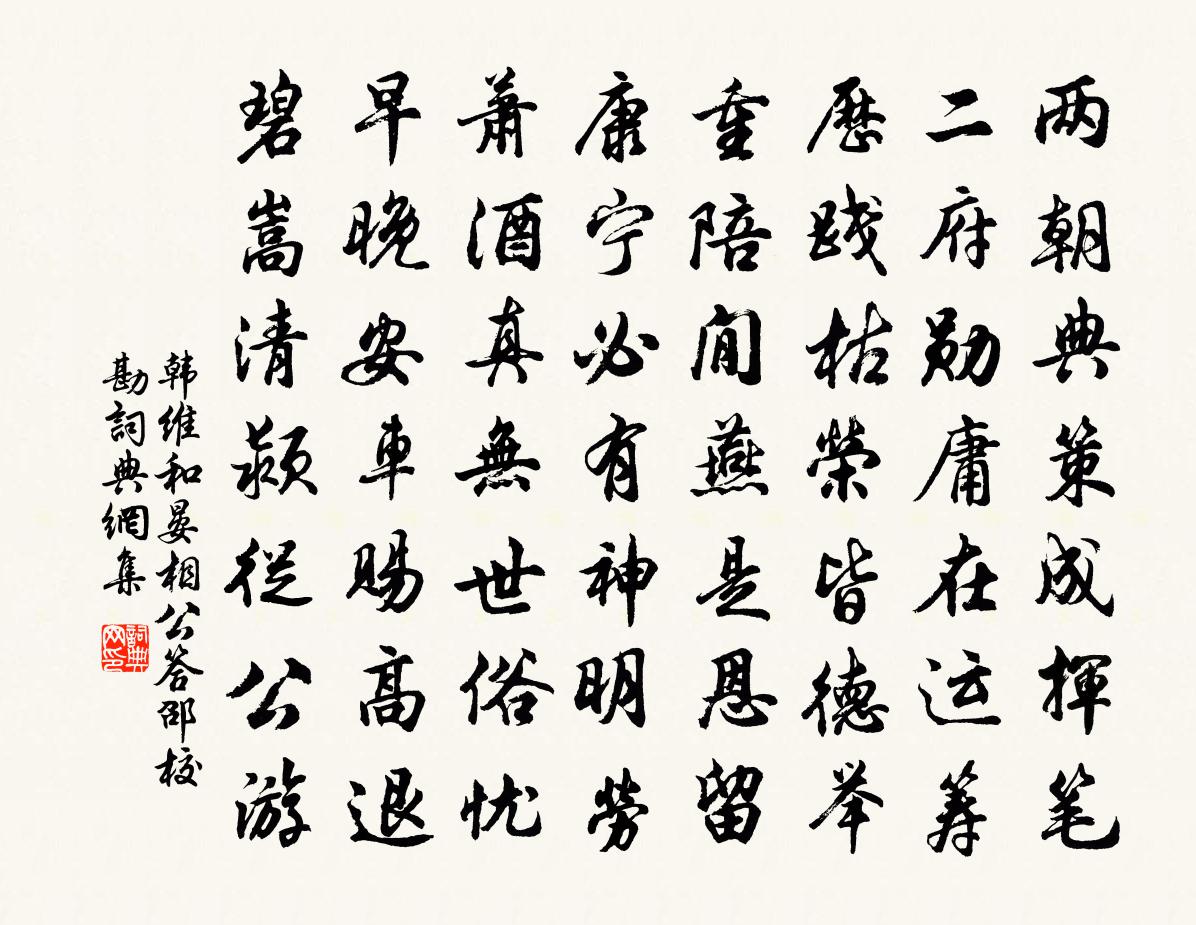 两朝典策成揮笔
二府勋庸在运筹
歷践枯榮皆德举
重陪閒燕是恩留
康宁必有神明劳
萧酒真無世俗忧
早晚安車賜高退
碧嵩清颍從公游
韩维和晏相公答邵校
勘詞典網集
詞典网印